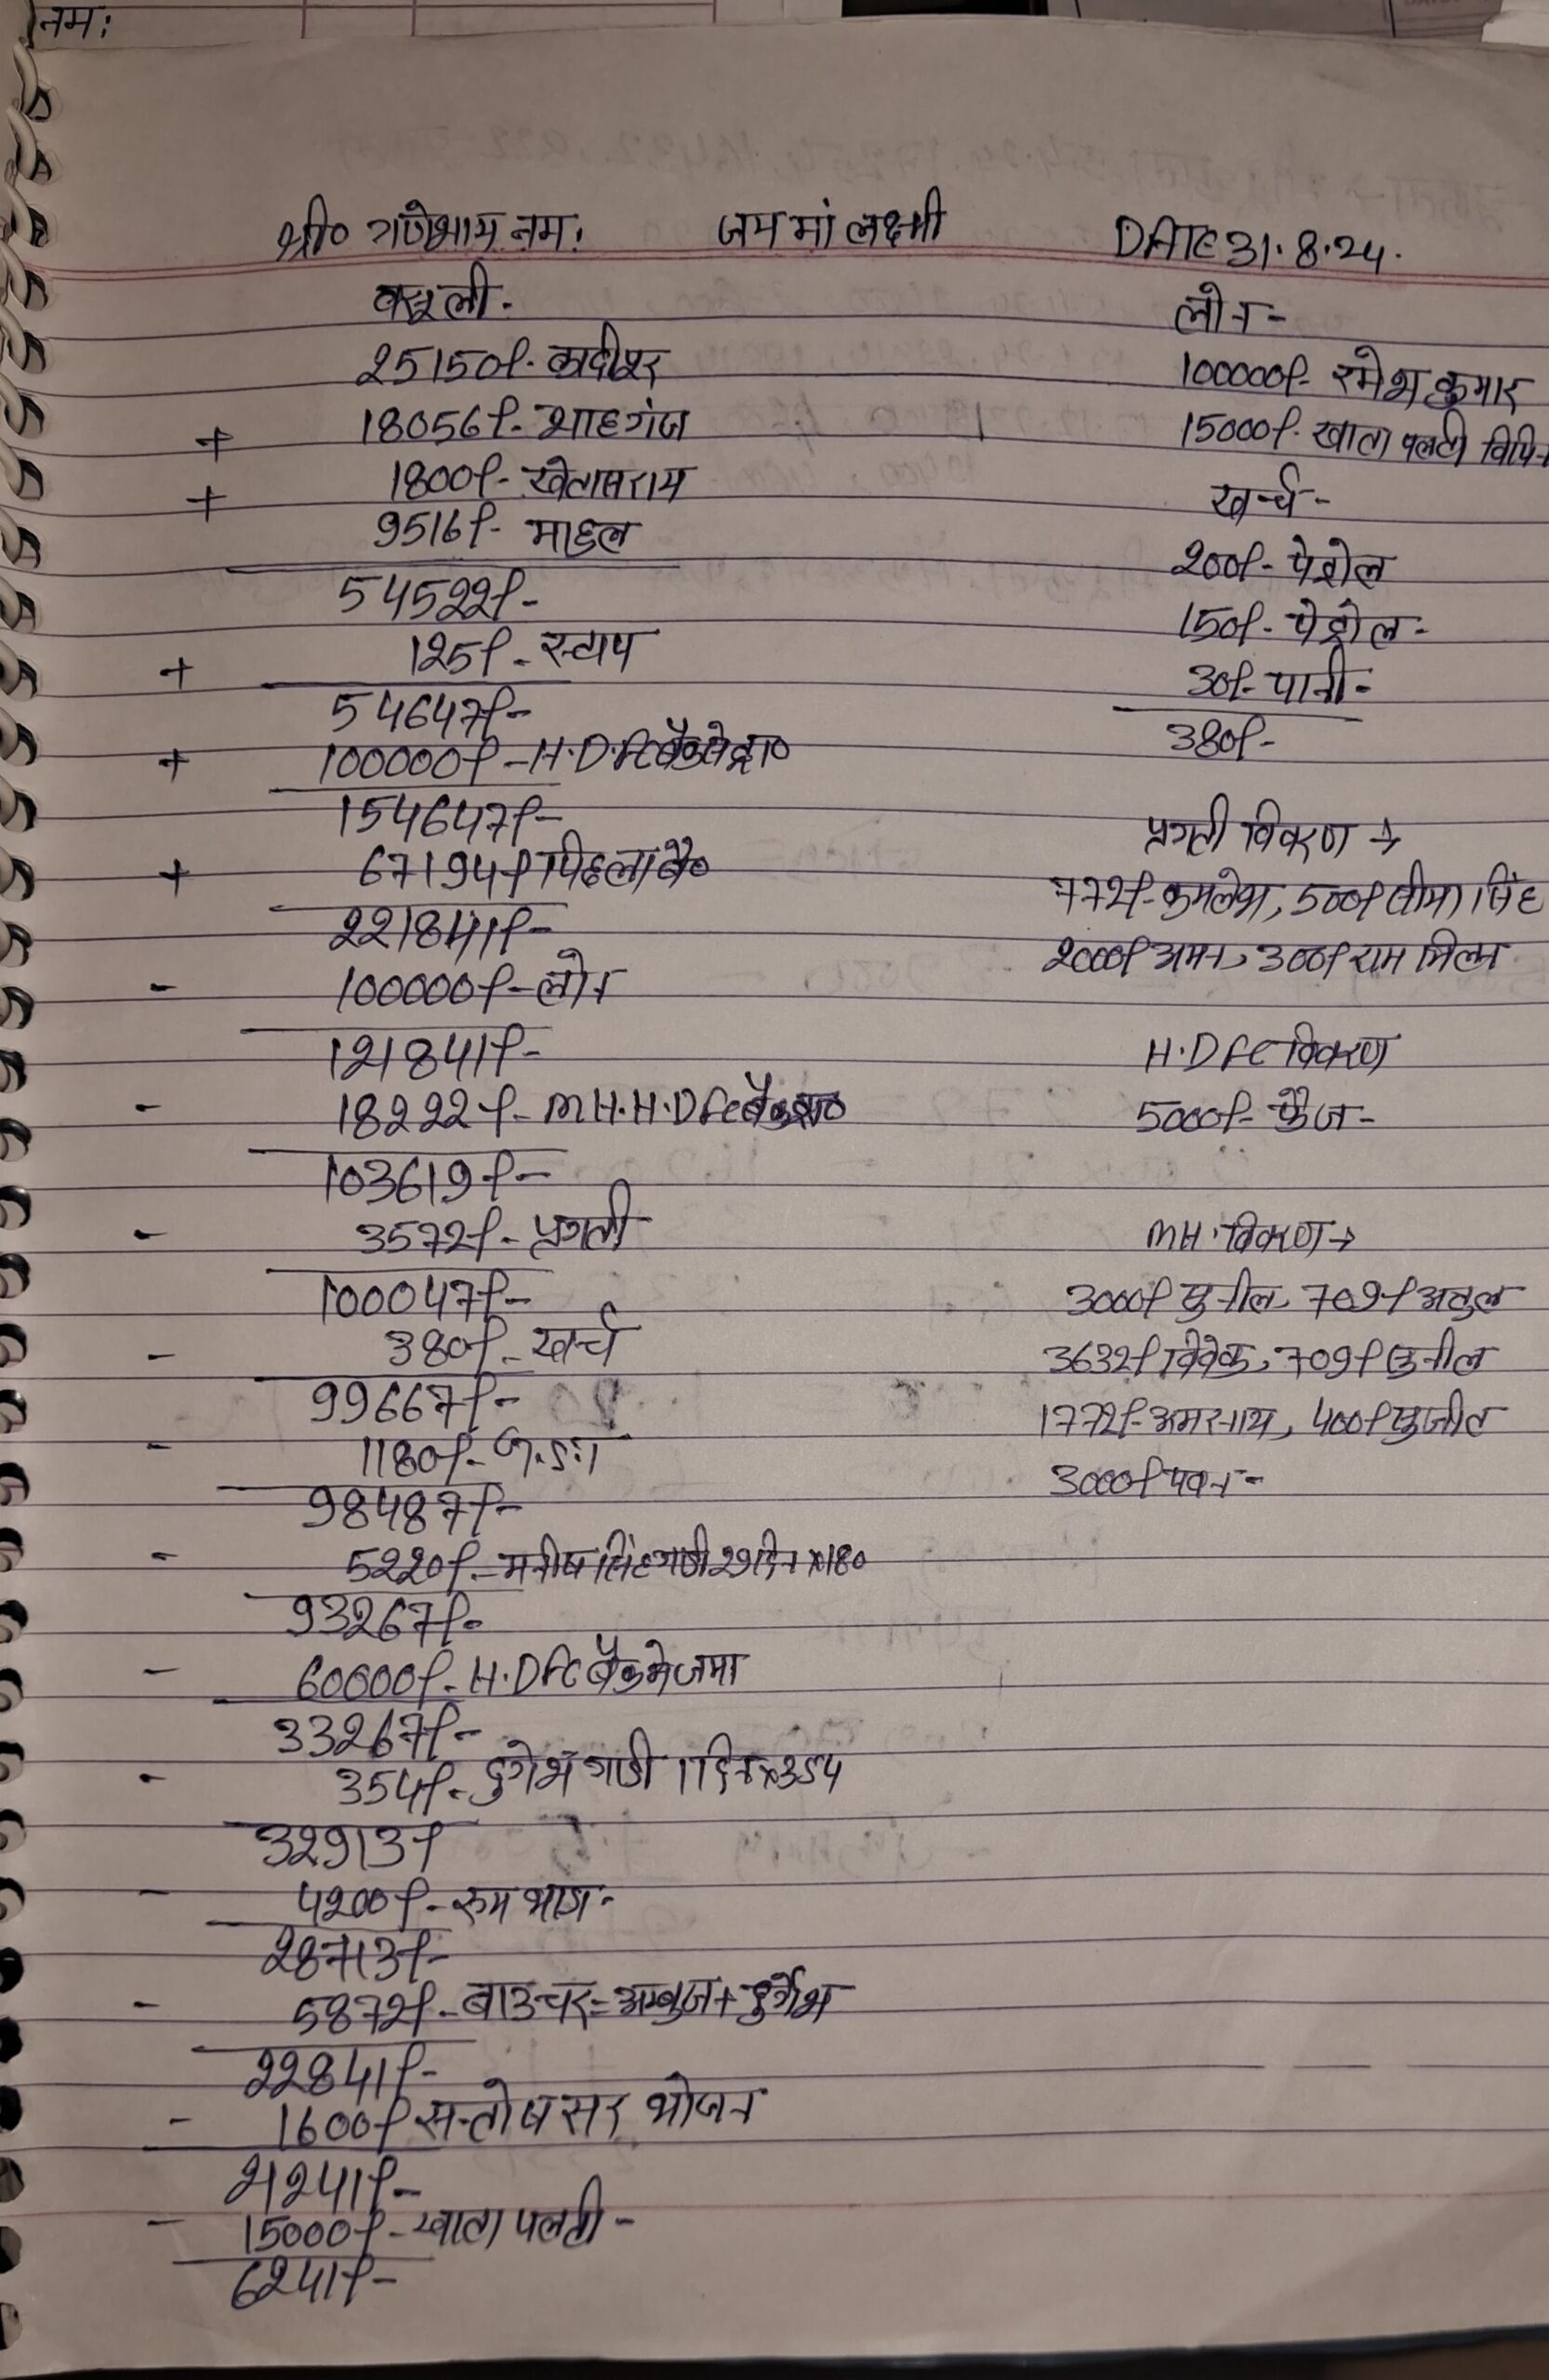 नमः
श्री० गणेशाय नमः जय मां लक्ष्मी DATE 31.8.24.
वसूली-
25150/- कादीपुर
+ 18056/- शाहगंज
+ 1800/- खेतासराय
9516/- माहुल
54522/-
+ 125/- स्टाप
54647/-
+ 100000/- H.D.FC बैंक से प्रा०
154647/-
+ 67194/- पिछला बै०
221841/-
- 100000/- लोन
121841/-
- 18222/- MH.H.DFC बैंक
103619/-
- 3572/- प्रगती
100047/-
- 380/- खर्च
99667/-
- 1180/-
98487/-
- 5220/- मनीष सिंह गाडी 29 दिन x180
93267/-
- 60000/- H.DFC बैंक मे जमा
33267/-
- 354/- दुर्गेश गाडी 1 दिन x354
32913/-
- 4200/- रुम भाडा-
28713/-
- 5872/- बाउचर = अम्बुज + दुर्गेश
22841/-
- 1600/- सन्तोष सर भोजन
21241/-
- 15000/- खाता पलटी-
6241/-
लोन-
100000/- रमेश कुमार
15000/- खाता पलटी विपिन
खर्च-
200/- पेट्रोल
150/- पेट्रोल-
30/- पानी-
380/-
प्रगती विवरण →
772/- कमलेश, 500/- सीमा सिंह
2000/- अमन, 300/- राम मिलन
H.DFC विवरण
5000/- फैज-
MH. विवरण →
3000/- सुनील, 709/- अतुल
3632/- विवेक, 709/- सुनील
1772/- अमरनाथ, 400/- सुजीत
3000/- पवन-